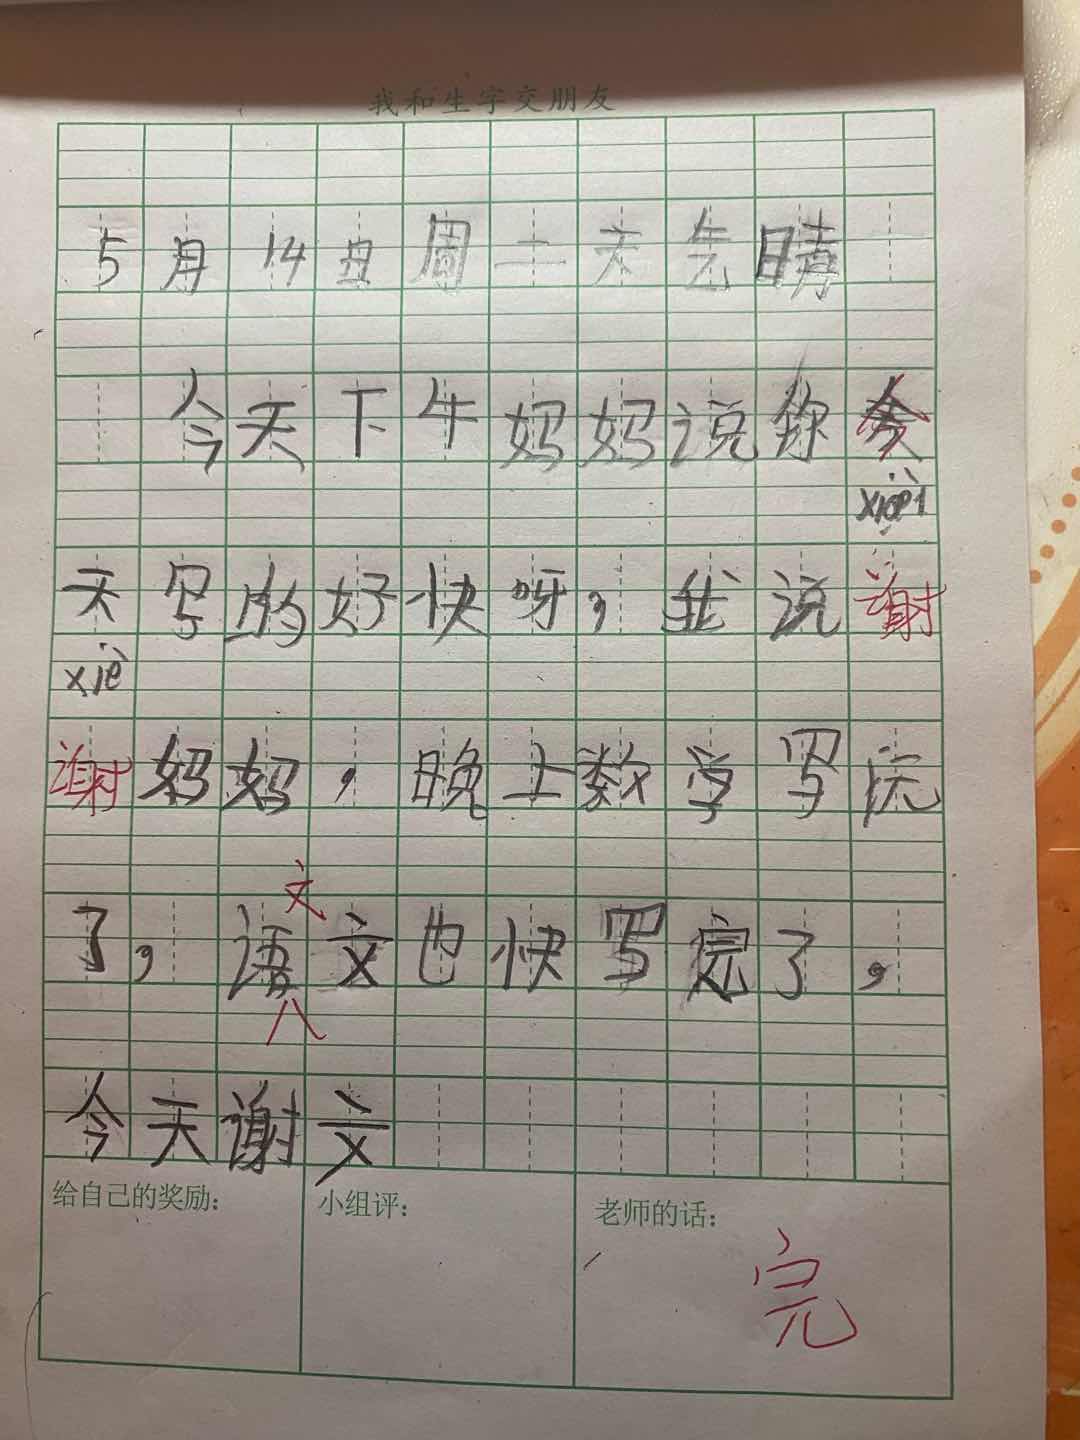 我和生字交朋友
5月14日周二天气晴
今天下午妈妈说你今
xiè
天写的好快呀，我说谢
xiè
谢妈妈，晚上数学写完
文
了，语文也快写完了，
八
今天谢文
给自己的奖励： 小组评： 老师的话：
完